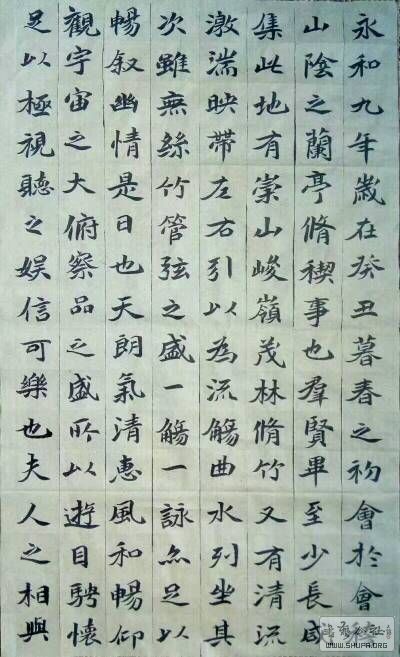 永和九年歲在癸丑暮春之初會於會稽
山陰之蘭亭脩禊事也羣賢畢至少長咸
集此地有崇山峻嶺茂林脩竹又有清流
激湍映帶左右引以為流觴曲水列坐其
次雖無絲竹管弦之盛一觴一詠亦足以
暢叙幽情是日也天朗氣清惠風和暢仰
觀宇宙之大俯察品之盛所以遊目騁懷
足以極視聽之娛信可樂也夫人之相與
WWW.SHUFA.ORG